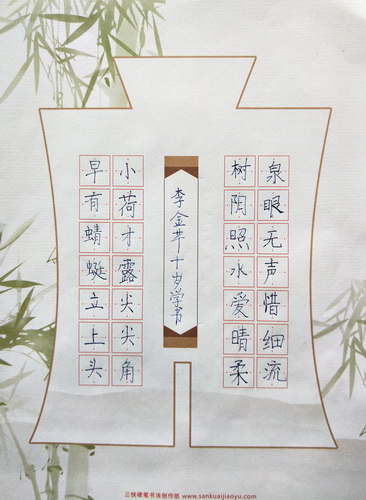 泉眼无声惜细流
树阴照水爱晴柔
李金芊十岁学书
小荷才露尖尖角
早有蜻蜓立上头
三快硬笔书法创作纸 www.sankuaijiaoyu.com